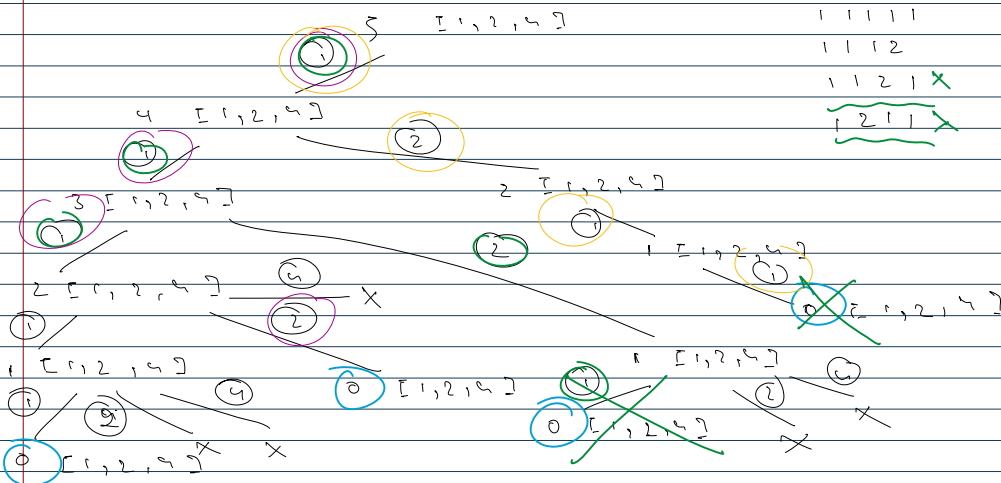 5 [1,2,4]
1 1 1 1 1
1 1 1 2
1 1 2 1 X
1 2 1 1 X
1
4 [1,2,4]
2
1
3 [1,2,4]
2 [1,2,4]
1
1
2
1 [1,2,4]
1
4
2 [1,2,4] X
2
0 [1,2,4]
1
1 [1,2,4]
0 [1,2,4]
1 [1,2,4]
1
2
4
1
2
4
0 [1,2,4]
X
X
X
X
0 [1,2,4]